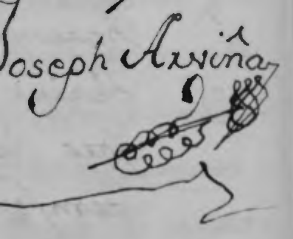 Joseph Arvina